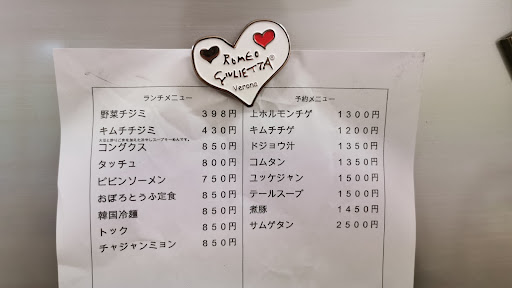 ROMEO
GIULIETTA®
Verona
ランチメニュー
野菜チジミ 398円
キムチチジミ 430円
コングクス 850円
タッチュ 800円
ビビンソーメン 750円
おぼろとうふ定食 850円
韓国冷麺 850円
トック 850円
チャジャンミョン 850円
予約メニュー
上ホルモンチゲ 1300円
キムチチゲ 1200円
ドジョウ汁 1350円
コムタン 1350円
ユッケジャン 1500円
テールスープ 1500円
煮豚 1450円
サムゲタン 2500円